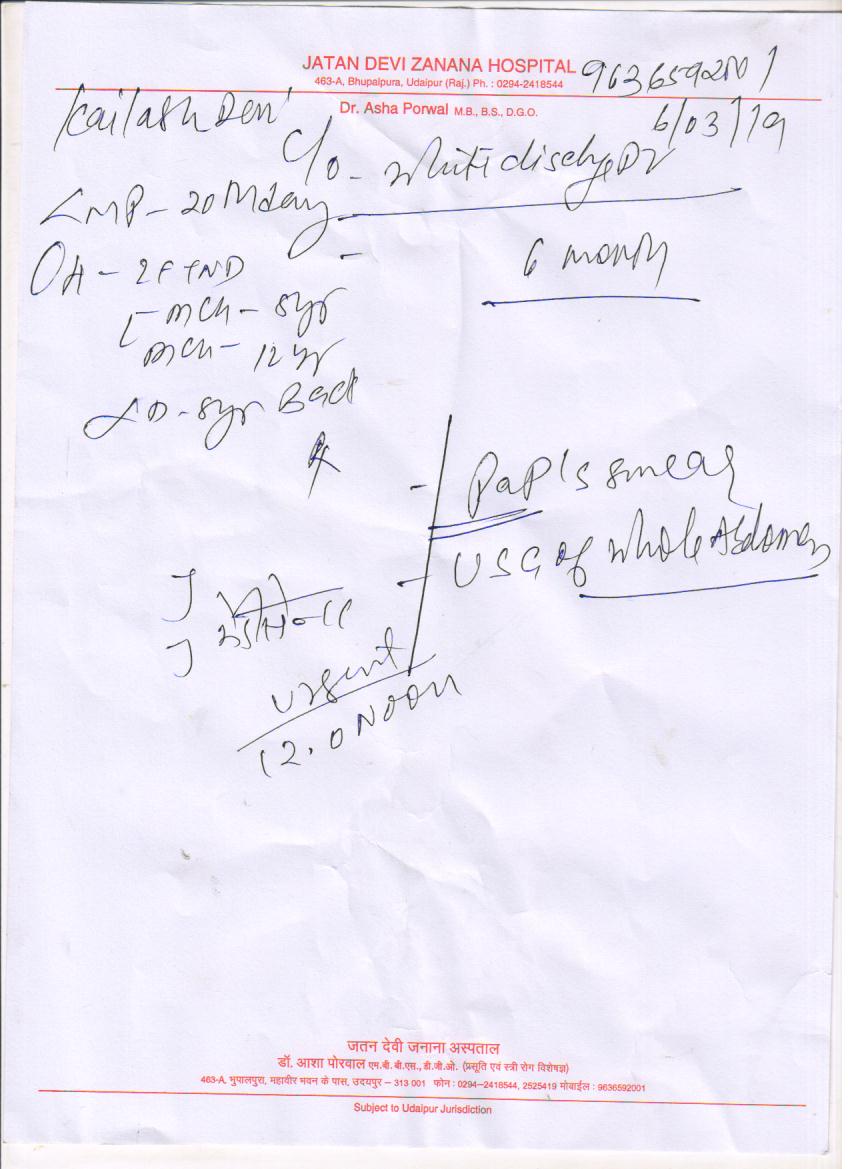 JATAN DEVI ZANANA HOSPITAL
463-A, Bhupalpura, Udaipur (Raj.) Ph. : 0294-2418544
Dr. Asha Porwal M.B., B.S., D.G.O.
Kailash Devi
6/03/19
C/o - white PV
LMP - 20
6 month
OH - 2FTND
MCh - 8yr
MCh - 12yr
LD - 8yr Back
Rx
- Pap's smear
- USG of whole Abdomen
Urgent
12.0 NOON
जतन देवी जनाना अस्पताल
डॉ. आशा पोरवाल एम.बी.बी.एस., डी.जी.ओ. (प्रसूति एवं स्त्री रोग विशेषज्ञ)
463-A, भुपालपुरा, महावीर भवन के पास, उदयपुर – 313 001 फोन : 0294–2418544, 2525419 मोबाईल : 9636592001
Subject to Udaipur Jurisdiction